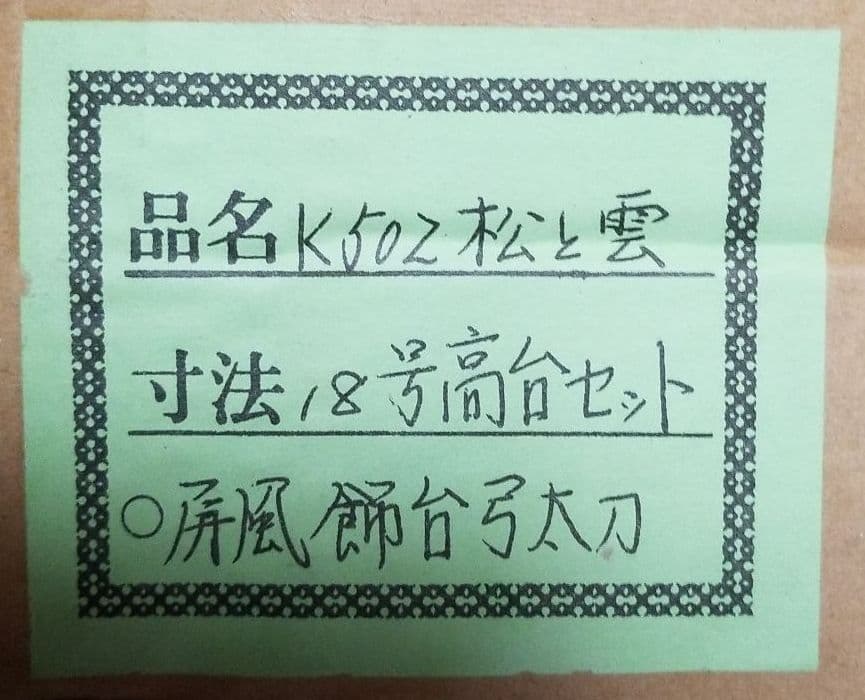 品名K502松と雲
寸法18号高台セット
○屏風飾台弓太刀